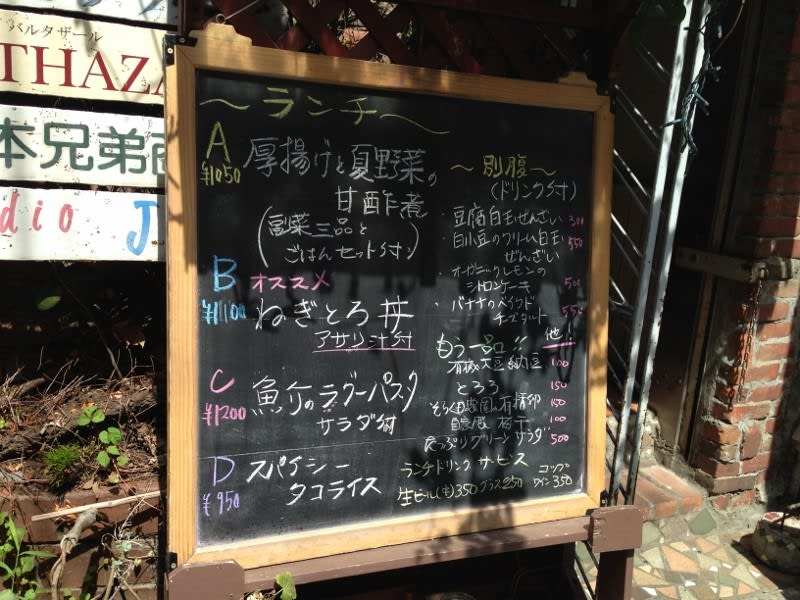 バルタザール
THAZA
本兄弟商
dio J
～ランチ～
A
¥1050
厚揚げと夏野菜の
甘酢煮
(副菜三品と
ごはんセット付)
B
オススメ
¥1100
ねぎとろ丼
アサリ汁付
C
¥1200
魚介のラグーパスタ
サラダ付
D
¥950
スパイシー
タコライス
～別腹～
(ドリンク付)
・豆腐白玉ぜんざい 500
・白小豆のクリーム白玉 550
ぜんざい
・オーガニックレモンの
シトロンケーキ 500
・バナナのベイクド
チーズタルト 550
もう一品!! 他!!
有機大豆納豆 100
とろろ 150
有精卵 150
梅干 100
たっぷりグリーンサラダ 500
ランチドリンクサービス
生ビール(中)350 グラス250 コップワイン350